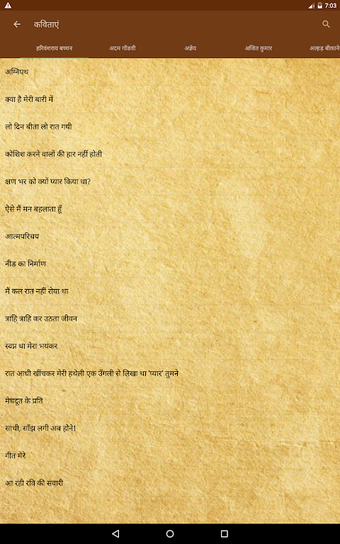 7:03
कविताएं
हरिवंशराय बच्चन अदम गोंडवी अज्ञेय अजित कुमार अल्हड़ बीकाने
अग्निपथ
क्या है मेरी बारी में
लो दिन बीता लो रात गयी
कोशिश करने वालों की हार नहीं होती
क्षण भर को क्यों प्यार किया था?
ऐसे मैं मन बहलाता हूँ
आत्मपरिचय
नीड का निर्माण
मैं कल रात नहीं रोया था
त्राहि त्राहि कर उठता जीवन
स्वप्न था मेरा भयंकर
रात आधी खींचकर मेरी हथेली एक उँगली से लिखा था 'प्यार' तुमने
मेघदूत के प्रति
साथी, साँझ लगी अब होने!
गीत मेरे
आ रही रवि की सवारी